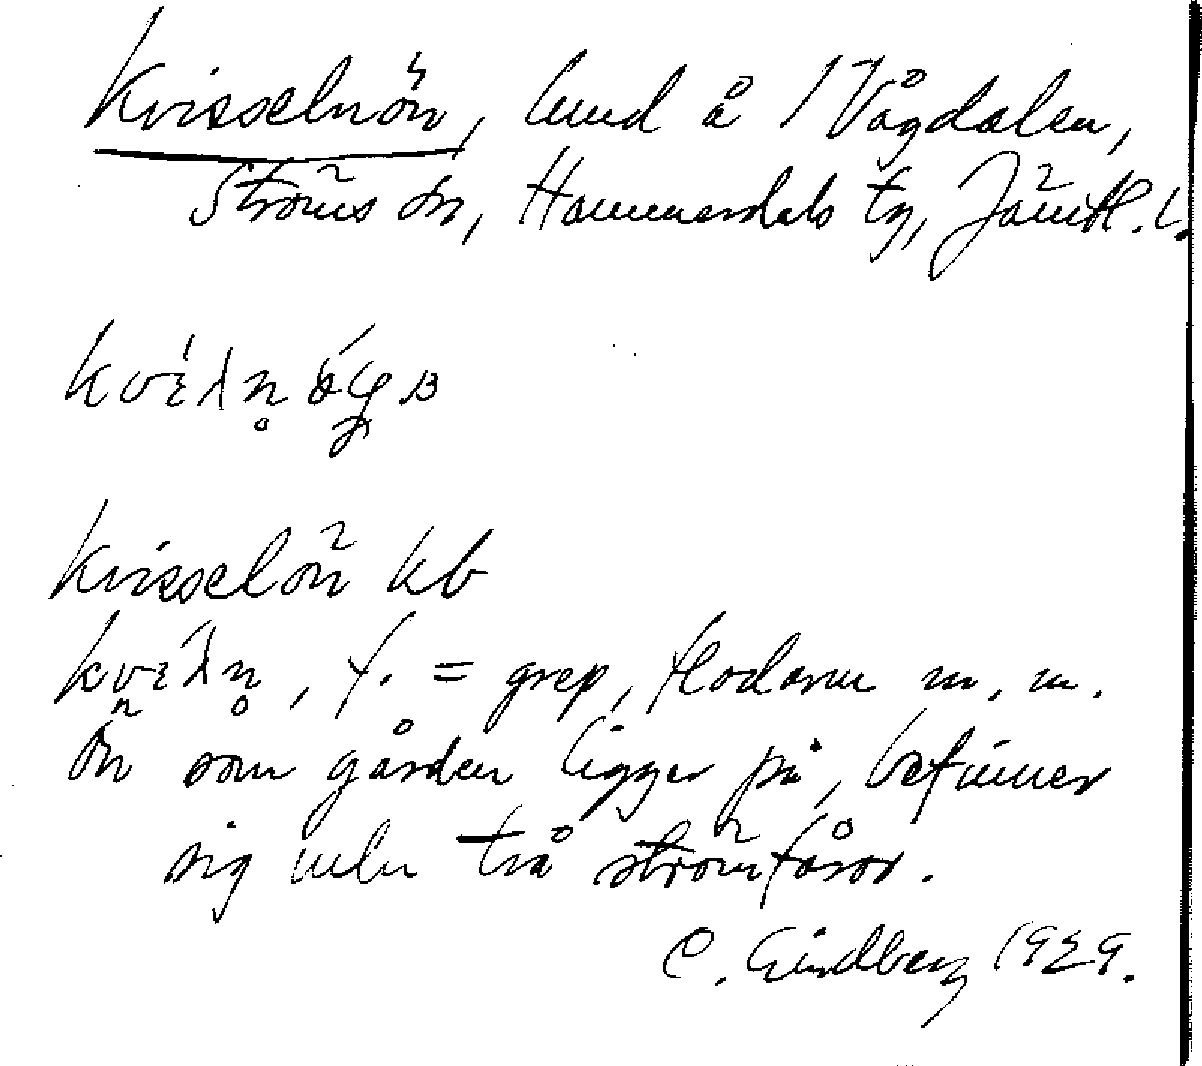 Kvisselnön, lund å 1 Vågdalen,
Ströms sn, Hammerdals tg, Jämtl. l.
Kvisselön kb
f. = grep, flodarm m. m.
Ön som gården ligger på, befinner
sig meln två strömfåror.
C. Lindberg 1929.